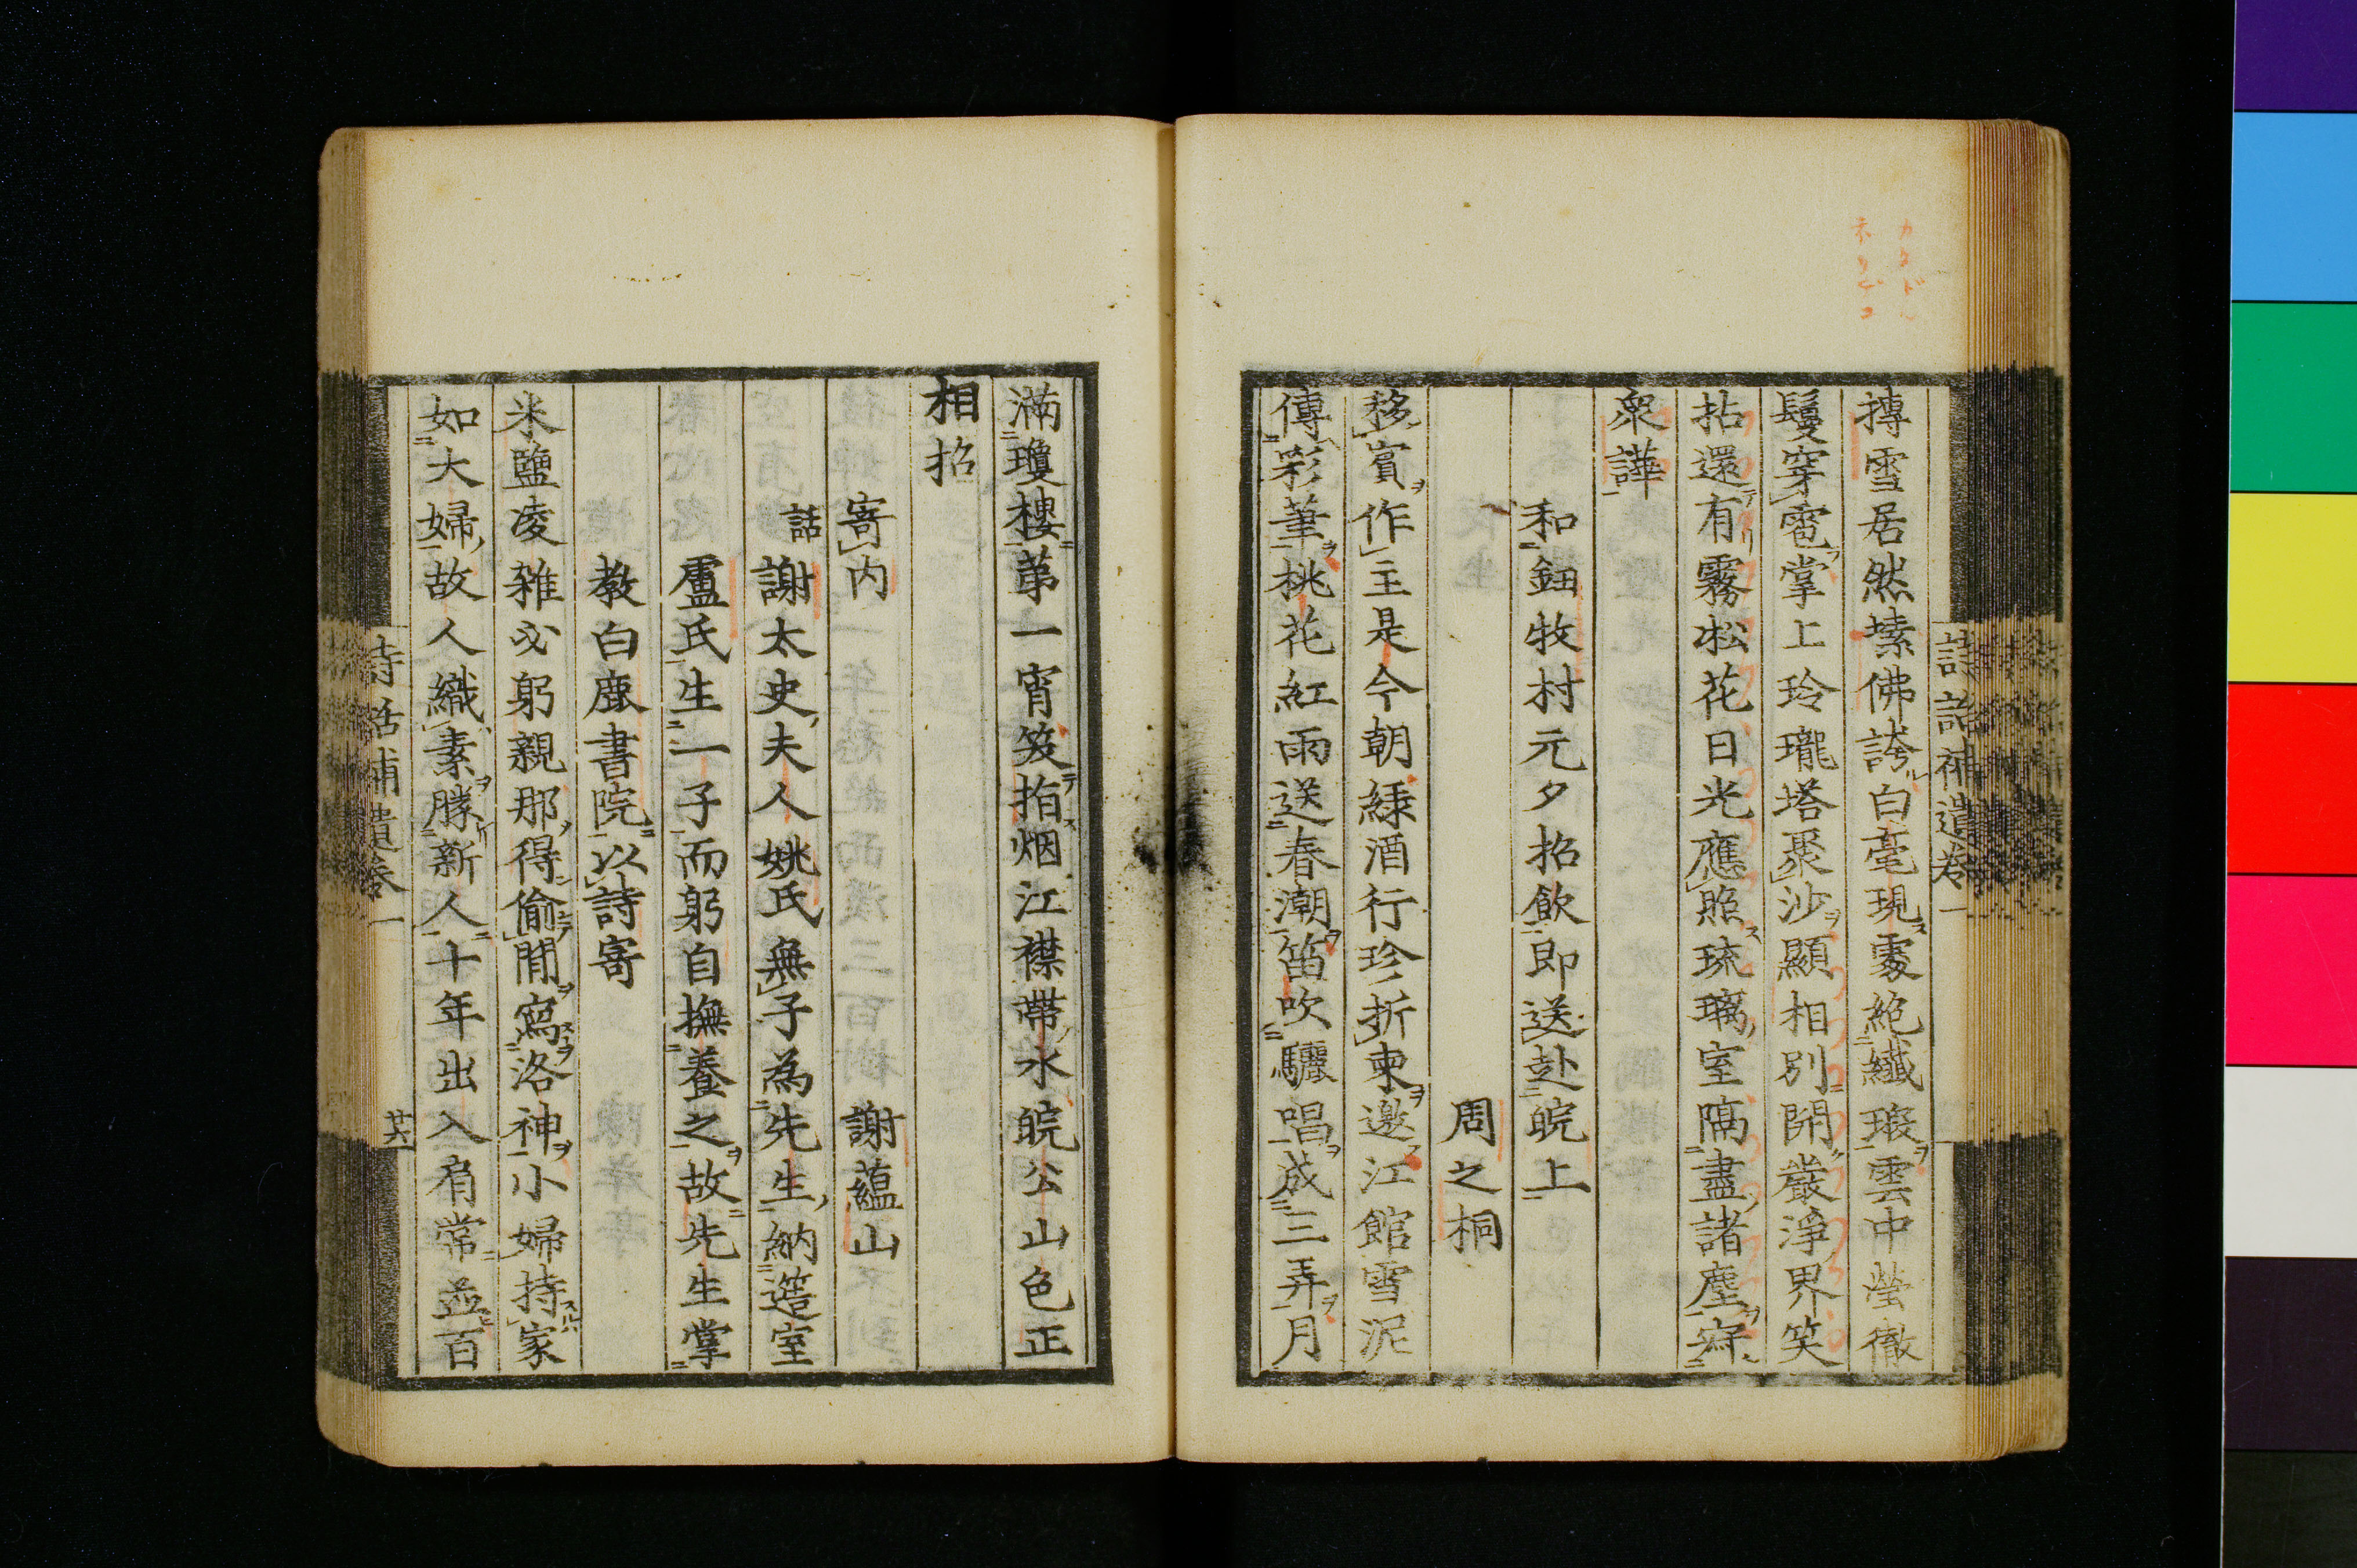 摶雪居然塐佛誇白毫現處絶纖瑕雲中瑩徹
鬘穿雹掌上玲瓏塔聚沙顯相別開嚴淨界笑
拈還有霧凇花日光應照琉璃室隔盡諸塵寂
衆譁
和鈕牧村元夕招飲即送赴皖上
周之桐
移賓作主是今朝綠酒行珍折柬邀江館雪泥
傳彩筆桃花紅雨送春潮笛吹驪唱成三弄月
滿瓊樓第一宵笑指烟江襟帶水皖公山色正
相招
寄內
謝蘊山
話謝太史夫人姚氏無子為先生納簉室
盧氏生一子而躬自撫養之故先生掌
教白鹿書院以詩寄
米鹽凌雜必躬親那得偷閒寫洛神小婦持家
如大婦故人織素勝新人十年出入肩常並百
詩話補遺卷一
詩話補遺卷一
廿六